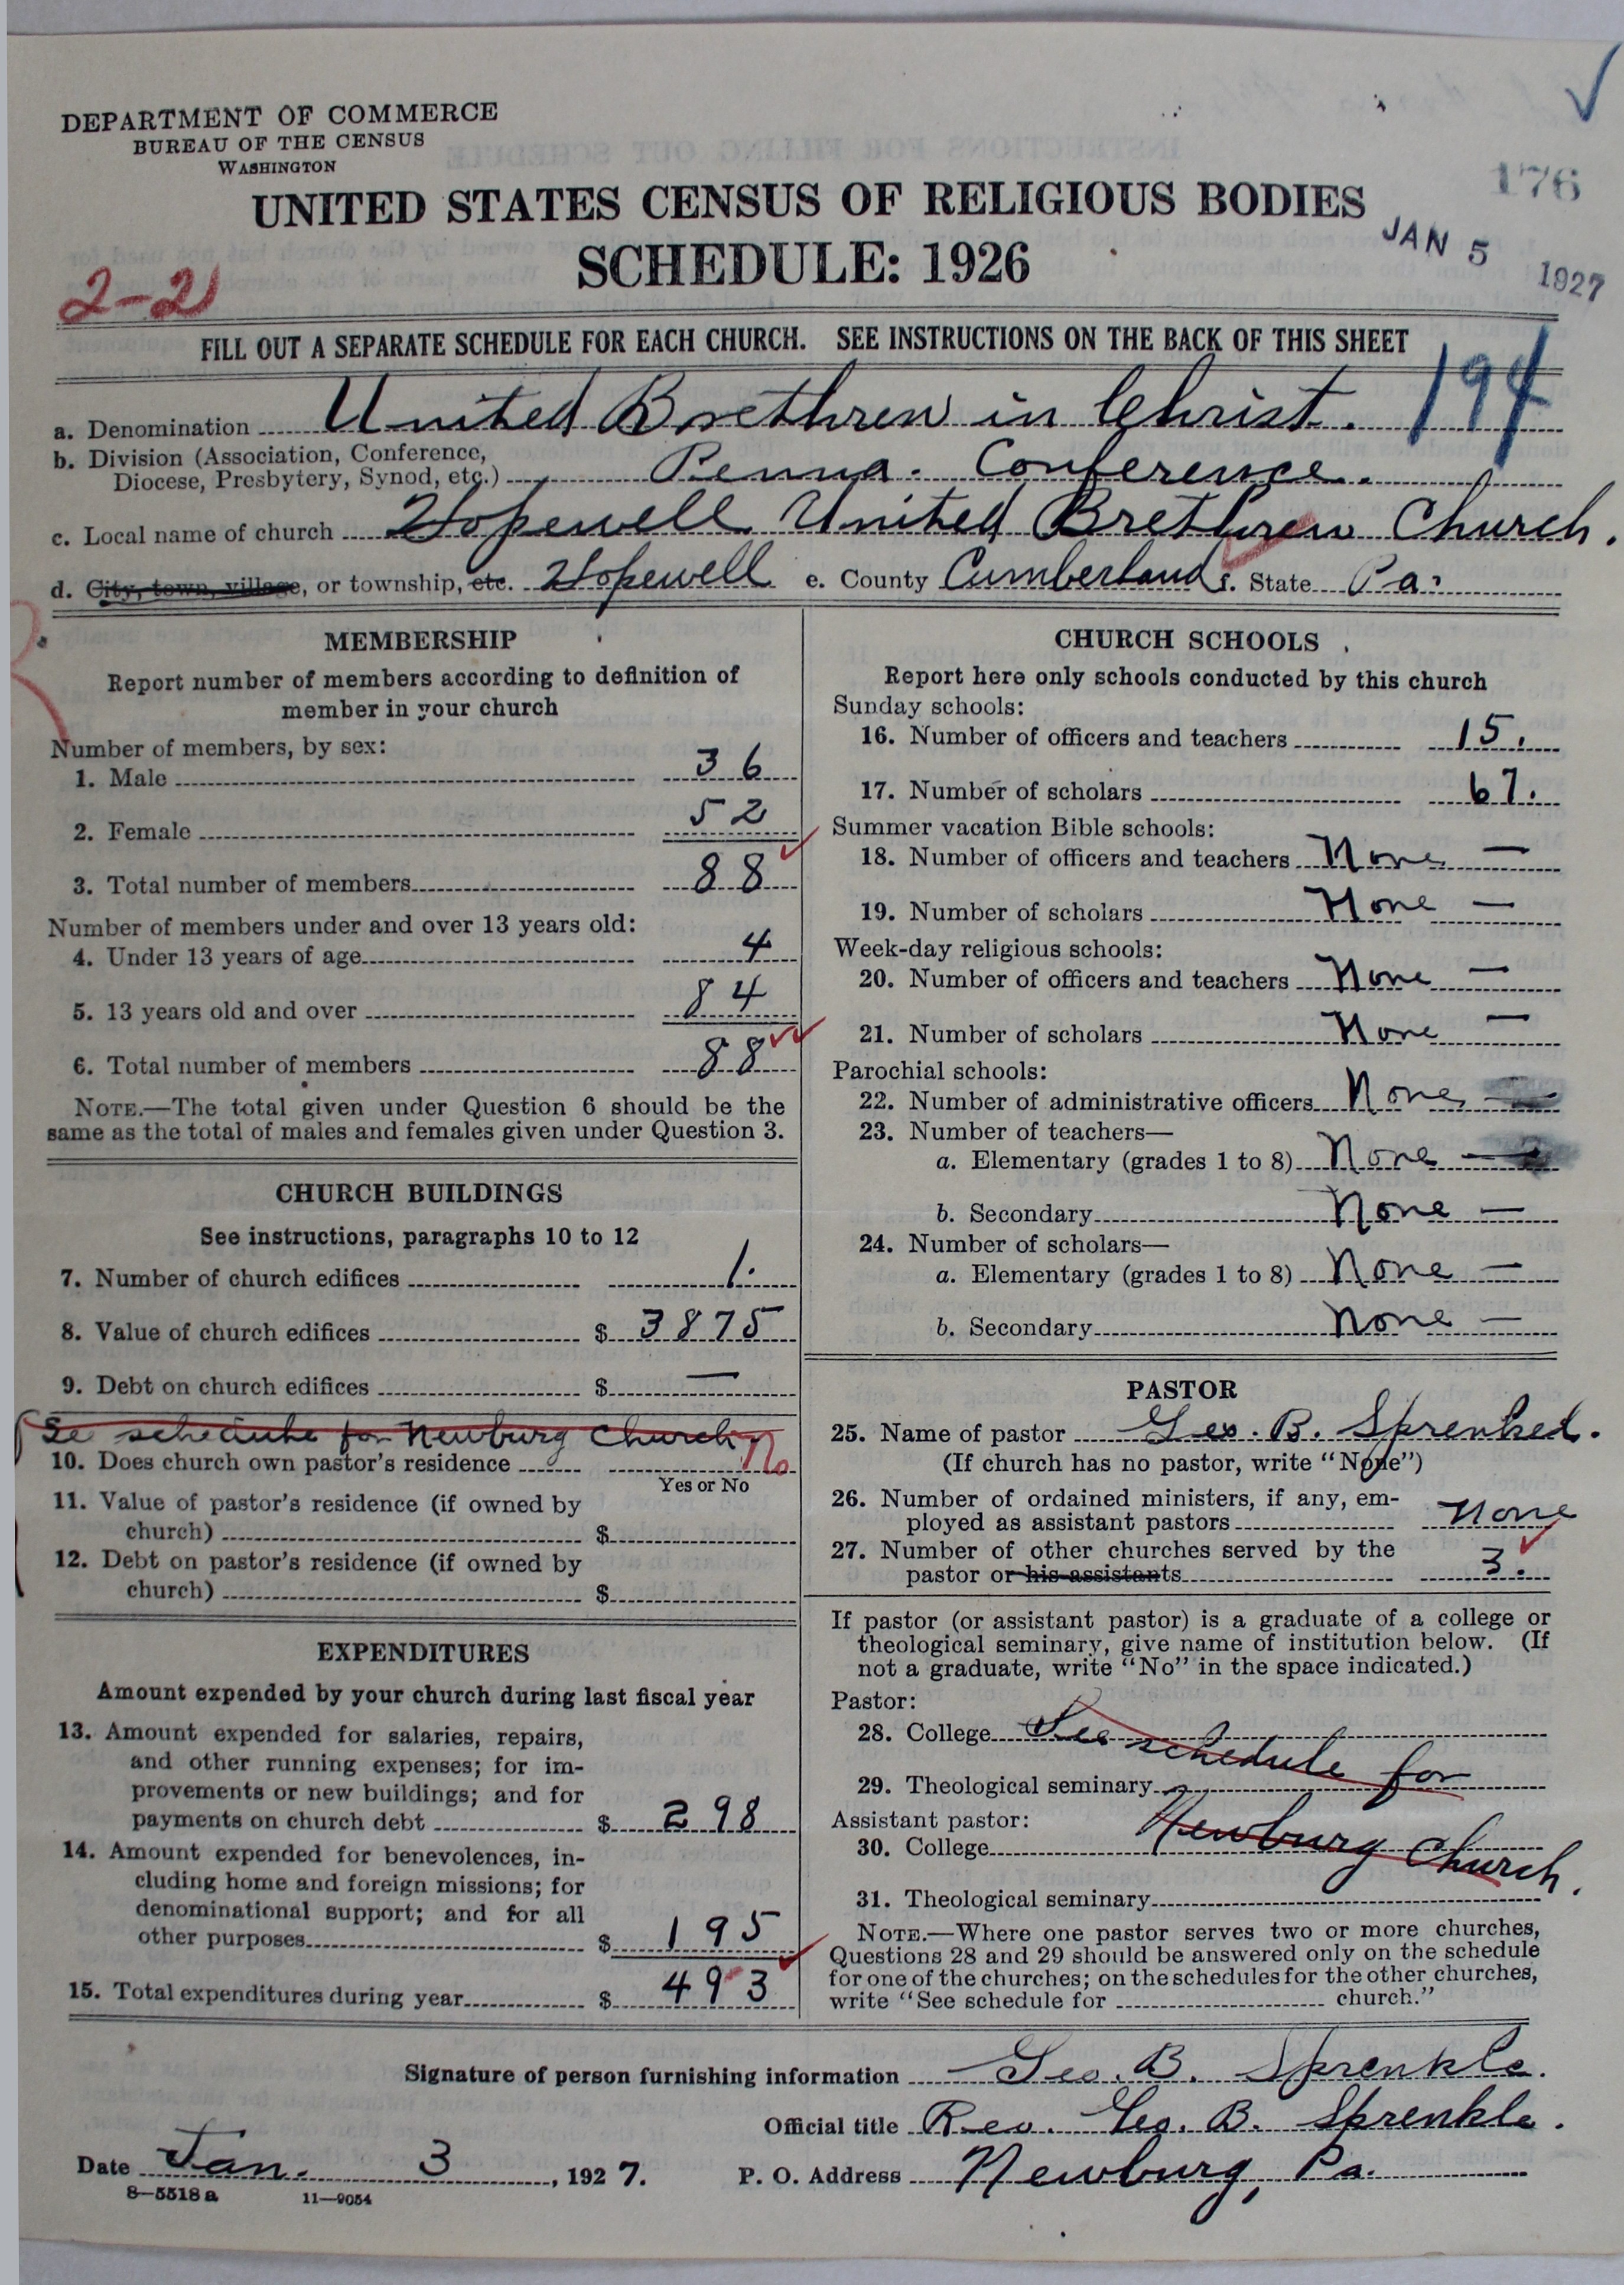 DEPARTMENT OF COMMERCE
BUREAU OF THE CENSUS
WASHINGTON
176
UNITED STATES CENSUS OF RELIGIOUS BODIES
SCHEDULE: 1926
JAN 5 1927
2-21
FILL OUT A SEPARATE SCHEDULE FOR EACH CHURCH. SEE INSTRUCTIONS ON THE BACK OF THIS SHEET
194
a. Denomination United Brethren in Christ.
b. Division (Association, Conference,
Diocese, Presbytery, Synod, etc.) Penna. Conference.
c. Local name of church Hopewell United Brethren Church.
d. City, town, village, or township, etc. Hopewell e. County Cumberland f. State Pa.
MEMBERSHIP
Report number of members according to definition of
member in your church
Number of members, by sex:
1. Male 36
2. Female 52
3. Total number of members 88
Number of members under and over 13 years old:
4. Under 13 years of age 4
5. 13 years old and over 84
6. Total number of members 88
NOTE.—The total given under Question 6 should be the
same as the total of males and females given under Question 3.
CHURCH BUILDINGS
See instructions, paragraphs 10 to 12
7. Number of church edifices 1.
8. Value of church edifices $ 3875
9. Debt on church edifices $ —
Se schedule for Newburg Church.
10. Does church own pastor's residence No
Yes or No
11. Value of pastor's residence (if owned by
church) $
12. Debt on pastor's residence (if owned by
church) $
EXPENDITURES
Amount expended by your church during last fiscal year
13. Amount expended for salaries, repairs,
and other running expenses; for im-
provements or new buildings; and for
payments on church debt $ 298
14. Amount expended for benevolences, in-
cluding home and foreign missions; for
denominational support; and for all
other purposes $ 195
15. Total expenditures during year $ 493
CHURCH SCHOOLS
Report here only schools conducted by this church
Sunday schools:
16. Number of officers and teachers 15.
17. Number of scholars 67.
Summer vacation Bible schools:
18. Number of officers and teachers None —
19. Number of scholars None —
Week-day religious schools:
20. Number of officers and teachers None —
21. Number of scholars None —
Parochial schools:
22. Number of administrative officers None —
23. Number of teachers—
a. Elementary (grades 1 to 8) None —
b. Secondary None —
24. Number of scholars—
a. Elementary (grades 1 to 8) None —
b. Secondary None —
PASTOR
25. Name of pastor Geo. B. Sprenkel.
(If church has no pastor, write "None")
26. Number of ordained ministers, if any, em-
ployed as assistant pastors None
27. Number of other churches served by the
pastor or his assistants 3.
If pastor (or assistant pastor) is a graduate of a college or
theological seminary, give name of institution below. (If
not a graduate, write "No" in the space indicated.)
Pastor:
28. College See
schedule for
29. Theological seminary
Assistant pastor:
Newburg Church.
30. College
31. Theological seminary
NOTE.—Where one pastor serves two or more churches,
Questions 28 and 29 should be answered only on the schedule
for one of the churches; on the schedules for the other churches,
write "See schedule for church."
Signature of person furnishing information Geo. B. Sprenkle.
Official title Rev. Geo. B. Sprenkle.
Date Jan. 3, 1927. P. O. Address Newburg, Pa.
8—5518 a 11—9054